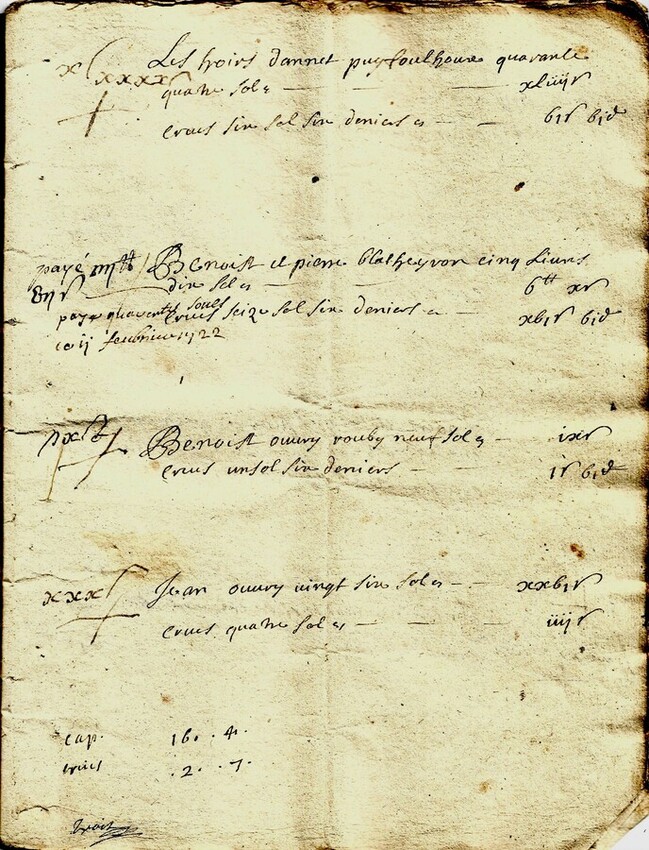 Les hoirs dannet puyfoulhoux quarante
xxxxs
quatre sols xliiijs
crues six sol six deniers bis bid
payé iijtt Benoist et pierre blatheyron cinq Livres
dix sols btt xs
paye quarente souls crues seize sol six deniers xbis bid
ce ij feubrier 1722
Benoist ouvry rouby neuf sols ixs
crues un sol six deniers is bid
xxxs Jean ouvry vingt six sols xxbis
crues quatre sols iiijs
cap. 16. . 4.
crues .2. . 7.